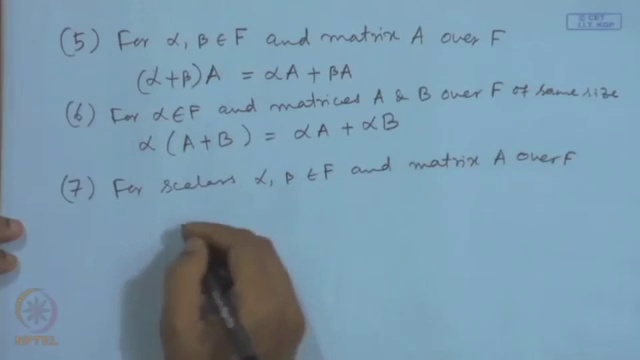 (5) For α, β ∈ F and matrix A over F
(α+β)A = αA + βA
(6) For α∈F and matrices A & B over F of same size
α (A+B) = αA + αB
(7) For scalars α, β ∈ F and matrix A over F
© CET
I.I.T. KGP
NPTEL